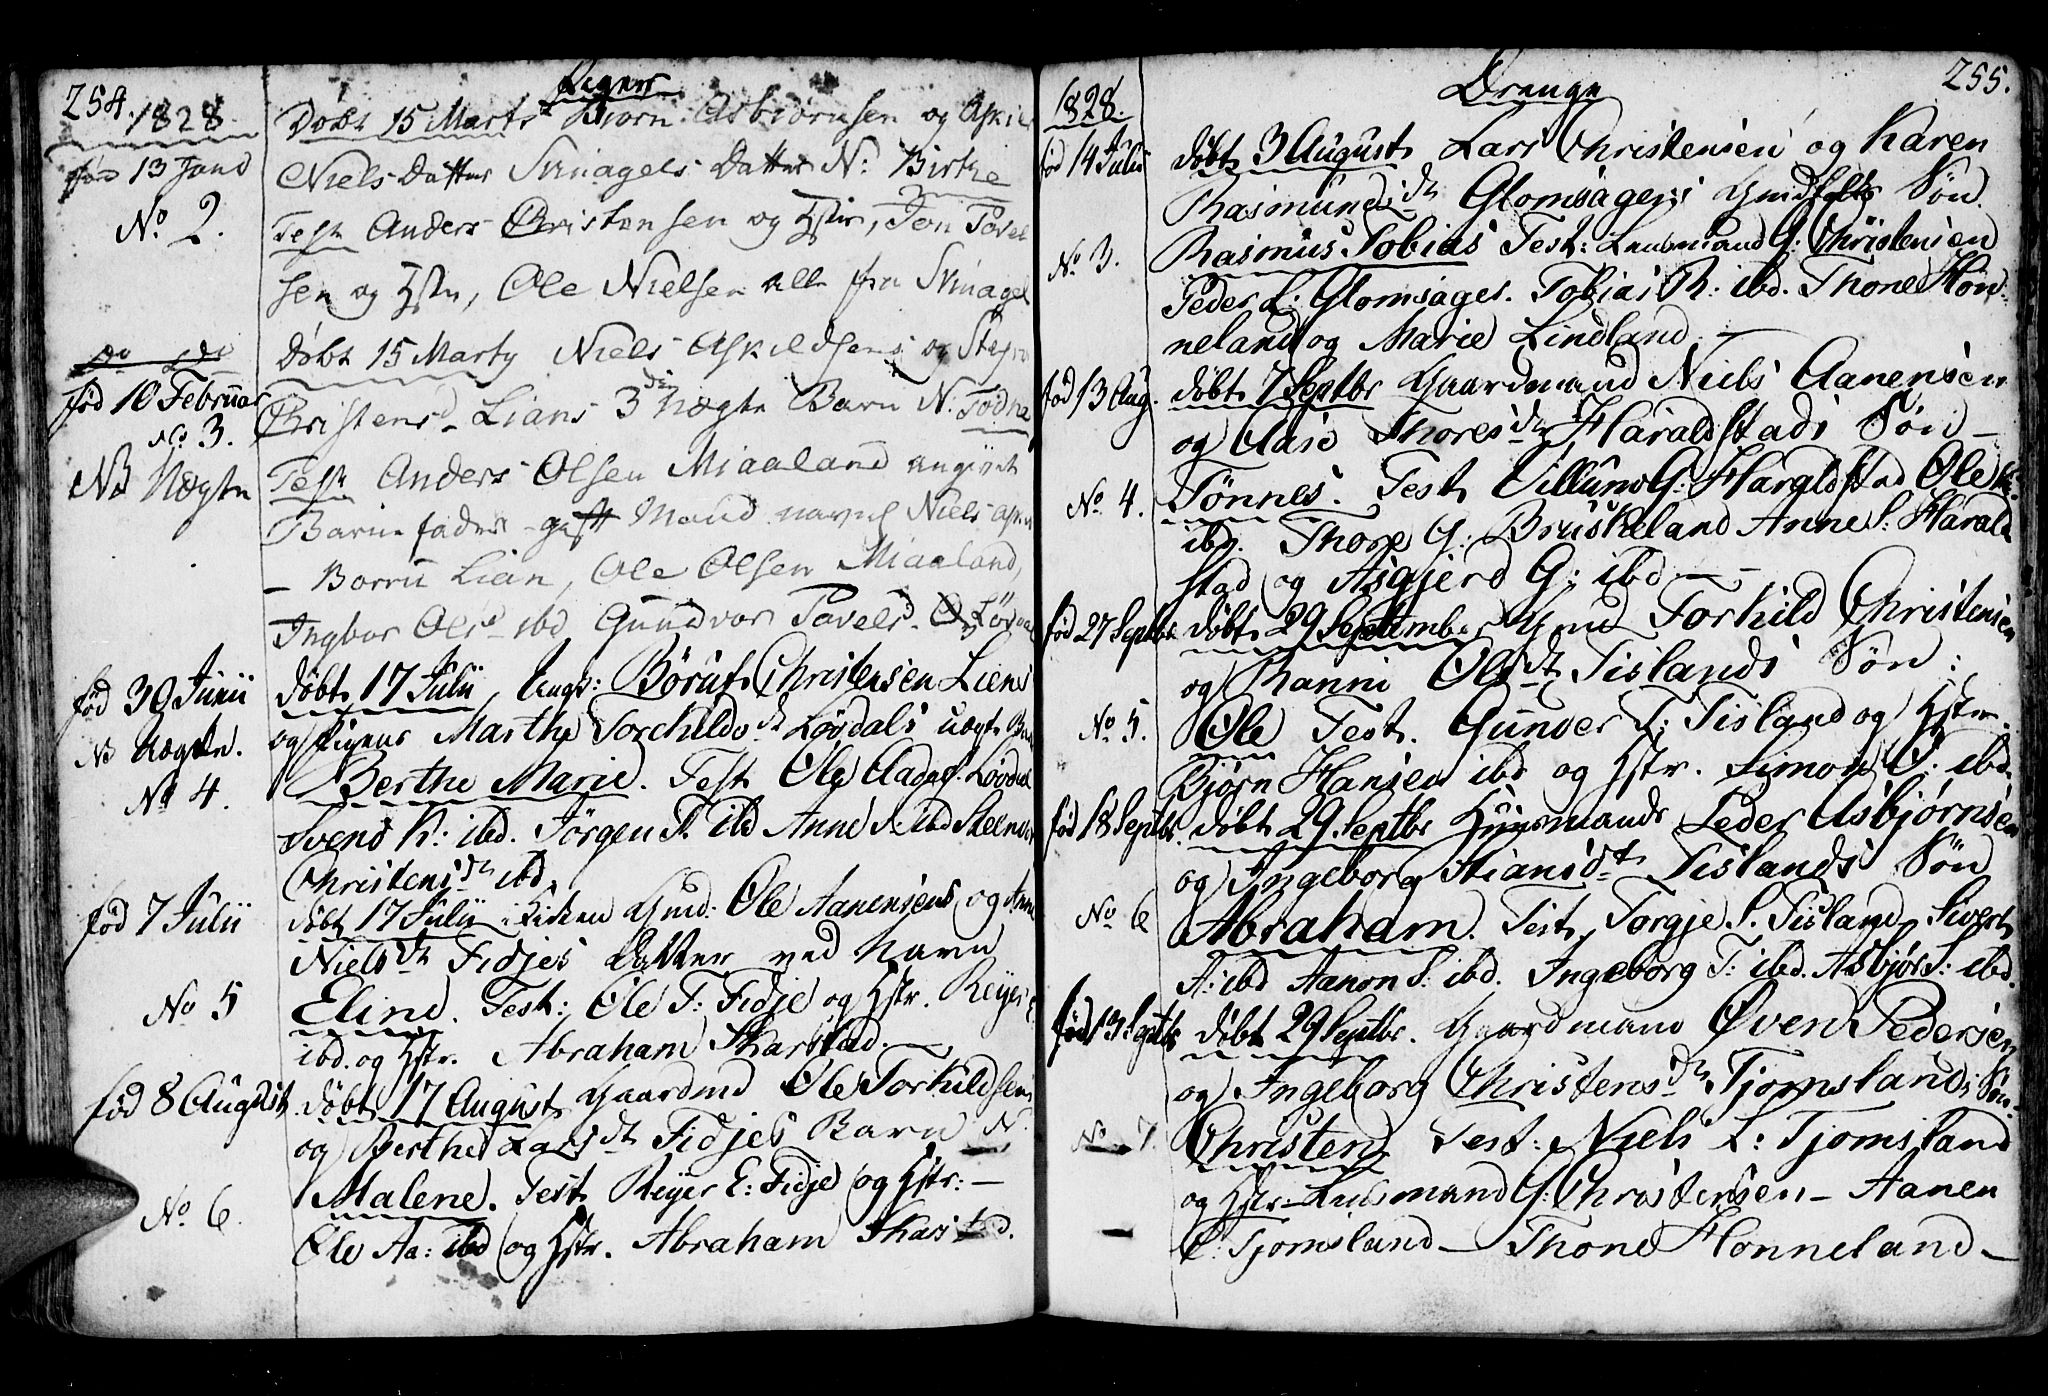 254.
1828.
Piger
Døbt 15 Marts Biørn Asbiørnsen og Askil
fød 13 Jan
Niels Datter Svinagels Datter N: Birthe
No 2.
Test Anders Christensen og Hstr, Jon Pavel
sen og Hstr, Ole Nielsen alle fra Svinagel
Døbt 15 Marty Niels Askildsens og
fød 10 Februar
Christensd Lians 3de Uægte Barn N: Tødne
No 3.
NB Uægte
Test Anders Olsen Miaaland angivet
Barne fader gift Mand navnl Niels
Lian, Ole Olsen Miaaland,
Ingbor Olsd ibd Gundvor Pavelsd
fød 30 Junii
døbt 17 Julii, Ungk: Børuf Christensen Liens
NB Uægte.
og Pigens Marthe Torchildsdr Løvdals uægte
No 4.
Berthe Marie. Test Ole Aadnes: Løvdal
Svend K: ibd. Jørgen T: ibd Anne ibd
Christensdr ibd.
fød 7 Julii
døbt 17 Julii i Kirken Gmd: Ole Aanensens og Anne
Nielsdr Fidjes Datter ved Navn
No 5
Eline. Test: Ole T: Fidje og Hstr. Reyer E
ibd. og Hstr. Abraham Skarstad.—
fød 8 August
døbt 17 August Gaardmd Ole Torkildsens
og Berthe Larsdt Fidjes Barn N.
Malene. Test Reyer E: Fidje og Hstr:—
No 6.
Ole Aa: ibd og Hstr. Abraham Skarstad.
255.
Drenge
1828.
fød 14 Julii
døbt 3 August Lars Christensen og Karen
Rasmundsdt Glomsagers Søn
No 3.
Rasmus Tobias Test: Lensmand G: Christensen
Peder L: Glomsager. Tobias R: ibd. Thone Høn-
neland og Marie Lindland.—
fød 13 Aug.
døbt 7 Septbr Gaardmand Niels Aanensen
og Aase Thoresdtr Haraldstads Søn—
No 4.
Tønnes. Test Villum G: Haraldstad Ole
ibd. Thore G: Bruskeland Anne S: Harald
stad og Asgjerd G: ibd—
fød 27 Septbr
døbt 29 September, Gmd Torkild Christensen
og Ranni Olsdt Tislands Søn:
No 5.
Ole Test. Gunder T: Tisland og Hstr.
Bjørn Hansen ibd og Hstr. Simon O: ibd.
fød 18 Septbr.
døbt 29 Septbr Huusmands Peder Asbjørnsen
og Ingeborg Stiansdt Tislands Søn
No 6
Abraham. Test, Torgje S. Tisland, Sivert
A: ibd Aanon S: ibd. Ingeborg T: ibd. Asbjør S: ibd.
fød 13 Septbr
døbt 29 Septbr. Gaardmand Øven Pedersen
og Ingeborg Christensdr Tjomslands Søn—
No 7.
Christen Test: Niels L: Tjomsland
og Hstr— Lensmand G: Christensen— Aanen
C: Tjomsland— Thone Honneland—